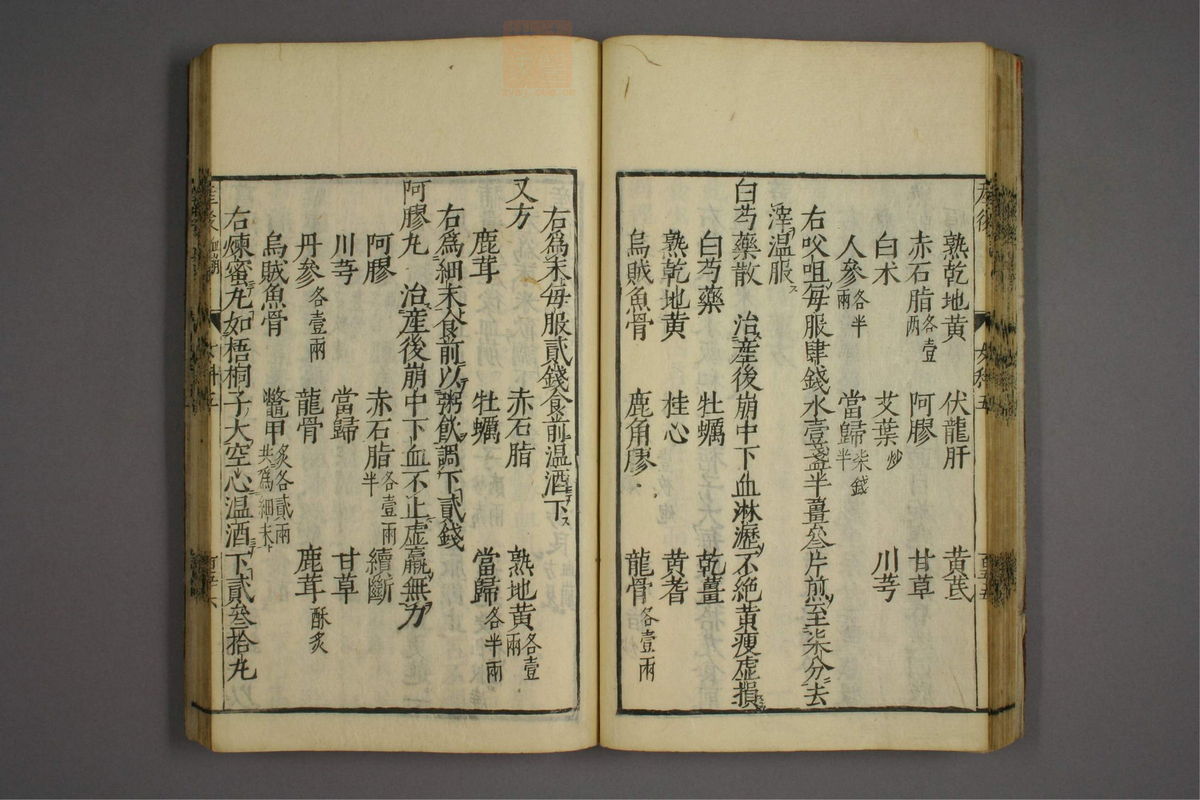 熟乾地黄 伏龍肝 黄芪
赤石脂各壹兩 阿膠 甘草
白术 艾葉炒 川芎
人參各半兩 當歸柒錢半
右㕮咀每服肆錢水壹盞半薑叄片煎至柒分去
滓温服
白芍藥散 治産後崩中下血淋瀝不絶黄瘦虚損
白芍藥 牡蠣 乾薑
熟乾地黄 桂心 黄耆
烏賊魚骨 鹿角膠 龍骨各壹兩
右爲末每服貳錢食前温酒下
又方 赤石脂 熟地黄各壹兩
鹿茸 牡蠣 當歸各半兩
右爲細末食前以粥飲調下貳錢
阿膠丸 治産後崩中下血不止虚羸無力
阿膠 赤石脂各壹兩半 續斷
川芎 當歸 甘草
丹參各壹兩 龍骨 鹿茸酥炙
烏賊魚骨 鼈甲炙各貳兩共爲細末
右煉蜜丸如梧桐子大空心温酒下貳叄拾丸